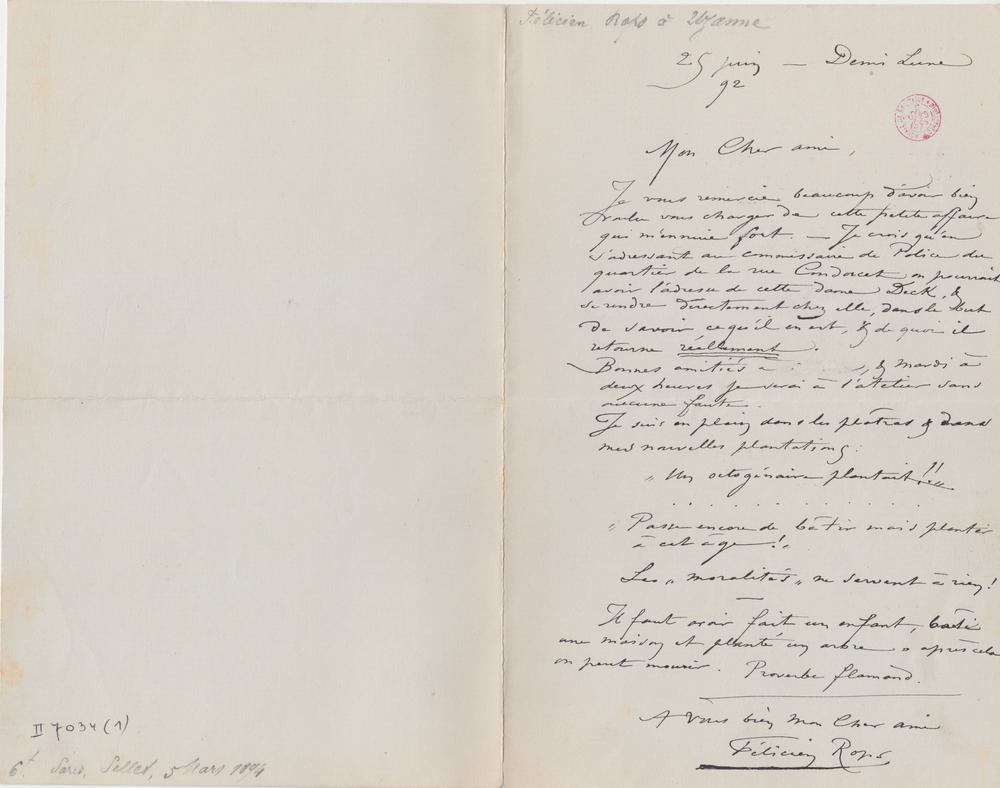 Félicien Rops à Uzanne
25 juin — Demi Lune
92
Mon Cher ami,
Je vous remercie beaucoup d'avoir bien
voulu vous charger de cette petite affaire
qui m'ennuie fort. — Je crois qu'en
s'adressant au commissaire de Police du
quartier de la rue Condorcet on pourrait
avoir l'adresse de cette dame Deck, &
se rendre directement chez elle, dans le but
de savoir ce qu'il en est, & de quoi il
retourne réellement.
Bonnes amitiés à , & mardi à
deux heures je serai à l'atelier sans
aucune faute.
Je suis en plein dans les plâtras & dans
mes nouvelles plantations:
„ Un octogénaire plantait!! „
. . . . . . . . .
„ Passe encore de bâtir mais planter
à cet âge! „
Les „ moralités „ ne servent à rien!
—
Il faut avoir fait un enfant, bâti
une maison et planté un arbre » après cela
on peut mourir. Proverbe flamand.
A vous bien mon Cher ami
Félicien Rops
II 7034 (1)
6t Paris, 5 Mars